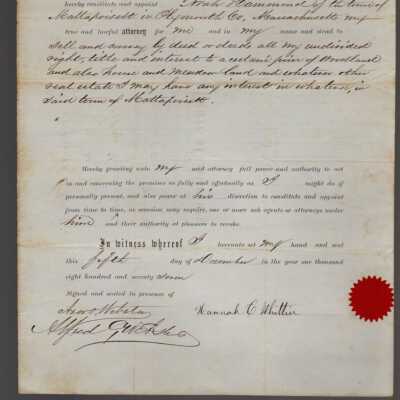 hereby constitute and appoint Noah Hammond of the town of
Mattapoisett in Plymouth Co, Massachusetts my
true and lawful attorney for me and in my name and stead to
Sell and convey by deed or deeds all my undivided
right, title and interest to a certain piece of Woodland
and also house and Meadow land and whatever other
real estate I may have any interest in whatever, in
said town of Mattapoisett.
Hereby granting unto my said attorney full power and authority to act
in and concerning the premises as fully and effectually as I might do if
personally present, and also power at his discretion to constitute and appoint
from time to time, as occasion may require, one or more sub agents or attorneys under
him and their authority at pleasure to revoke.
In witness whereof I hereunto set my hand and seal
this fifth day of December in the year one thousand
eight hundred and seventy
Signed and sealed in presence of
Hannah C Whittier
Alfred